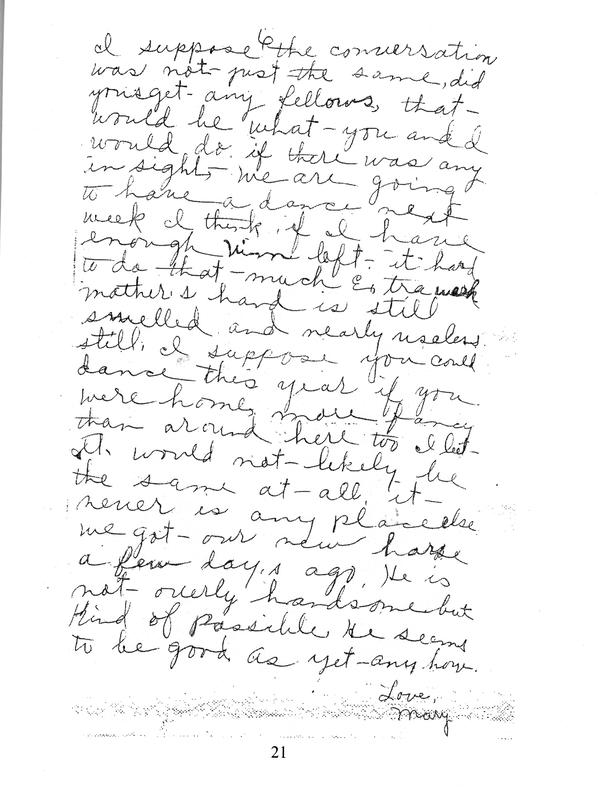 6
I suppose the conversation
was not just the same, did
you get any fellows, that
would be what you and I
would do if there was any
in sight, we are going
to have a dance next
week I think, if I have
enough left it hard
to do that much Extra work
mother's hand is still
swelled and nearly useless
still, I suppose you could
dance this year if you
were home, more fancy
than around here too I bet
It would not likely be
the same at all, it
never is any place else
we got our new horse
a few days ago, He is
not overly handsome but
Kind of passible He seems
to be good as yet any how.
Love,
Mary
21